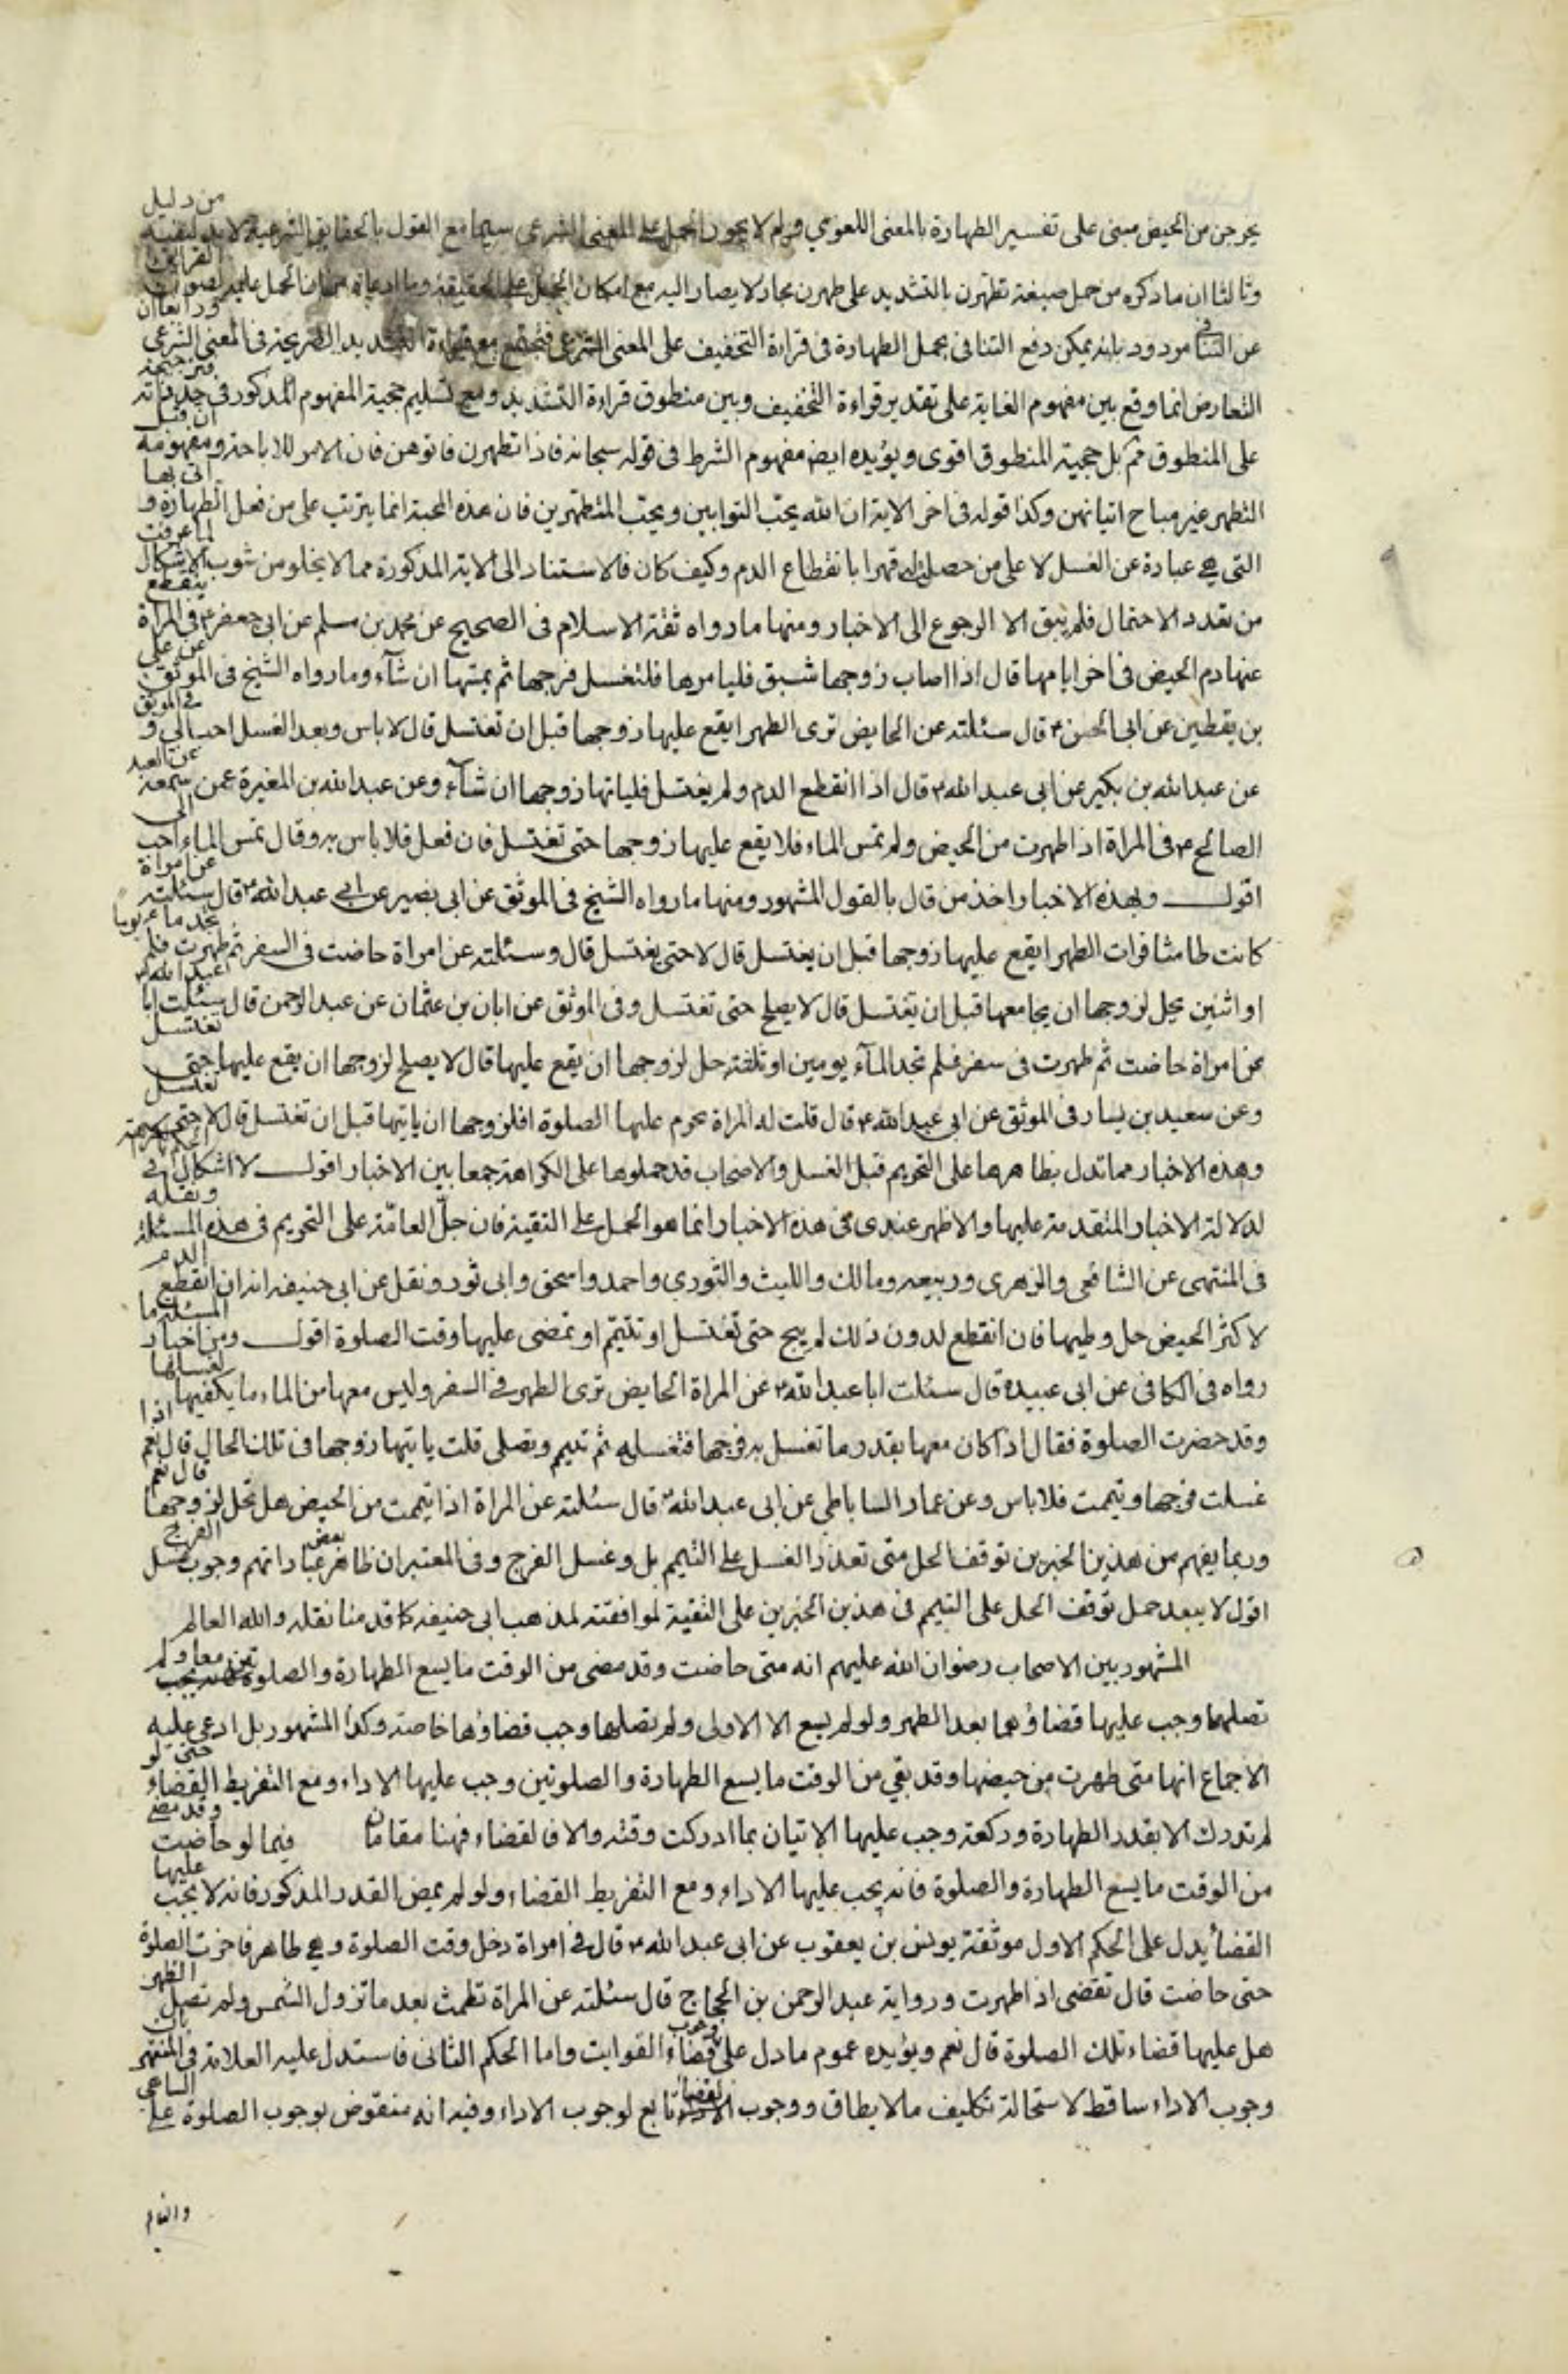 يخرجن من الحيض مبنى على تفسير الطهارة بالمعنى اللغوي ولم لا يجوز الحمل على المعنى الشرعي سيما مع القول بالحقايق الشرعية من دليل
وثالثا ان ما ذكره من حمل صيغة تطهرن بالتشديد على طهرن مجاز لا يصار اليه مع امكان الحمل على الحقيقة وما ادعاه الحمل عليه لصون القرائتين
عن التنافي مردود بانه يمكن دفع التنافى بحمل الطهارة فى قراءة التخفيف على المعنى الشرعى فتجتمع مع قراءة التشديد الصريحة فى المعنى الشرعى ورابعا ان
التعارض انما وقع بين مفهوم الغاية على تقدير قراءة التخفيف وبين منطوق قراءة التشديد ومع تسليم حجية المفهوم المذكور فى حد ذاته فترجيحه
على المنطوق مم بل حجية المنطوق اقوى ويؤيده ايضا مفهوم الشرط فى قوله سبحانه فاذا تطهرن فاتوهن فان الامر للاباحة ومفهومه ان قبل
التطهر غير مباح اتيانهن وكذا قوله فى اخر الاية ان الله يحب التوابين ويحب المتطهرين فان هذه المحبة انما يترتب على من فعل الطهارة و اتى بها
التى هي عبارة عن الغسل لا على من حصلت له قهرا بانقطاع الدم وكيف كان فالاستناد الى الاية المذكورة مما لا يخلو من شوب الاشكال لما عرفت
من تعدد الاحتمال فلم يبق الا الرجوع الى الاخبار ومنها ما رواه ثقة الاسلام فى الصحيح عن محمد بن مسلم عن ابى جعفر ع فى المراة ينقطع
عنها دم الحيض فى اخر ايامها قال اذا اصاب زوجها شبق فليامرها فلتغسل فرجها ثم يمسها ان شآء وما رواه الشيخ فى الموثق عن على
بن يقطين عن ابى الحسن ع قال سئلته عن الحايض ترى الطهر ايقع عليها زوجها قبل ان تغتسل قال لا باس وبعد الغسل احب الى و فى الموثق
عن عبد الله بن بكير عن ابى عبد الله ع قال اذا انقطع الدم ولم يغتسل فلياتها زوجها ان شآء وعن عبد الله بن المغيرة عمن سمعه عن العبد
الصالح ع فى المراة اذا طهرت من الحيض ولم تمس الماء فلا يقع عليها زوجها حتى تغتسل فان فعل فلا باس به وقال تمس الماء احب الى
اقول وبهذه الاخبار اخذ من قال بالقول المشهور ومنها ما رواه الشيخ فى الموثق عن ابى بصير عن ابى عبد الله ع قال سئلته عن امراة
كانت طامثا فرات الطهر ايقع عليها زوجها قبل ان يغتسل قال لا حتى يغتسل قال وسئلته عن امراة حاضت فى السفر ثم طهرت فلم تجد ماء يوما
او اثنين يحل لزوجها ان يجامعها قبل ان يغتسل قال لا يصلح حتى تغتسل وفى الموثق عن ابان بن عثمان عن عبد الرحمن قال سئلت ابا عبد الله ع
عن امراة حاضت ثم طهرت فى سفر فلم تجد المآء يومين او ثلثة حل لزوجها ان يقع عليها قال لا يصلح لزوجها ان يقع عليها حتى تغتسل
وعن سعيد بن يسار فى الموثق عن ابى عبد الله ع قال قلت له المراة يحرم عليها الصلوة افلزوجها ان ياتيها قبل ان تغتسل قال لا حتى تغتسل
وهذه الاخبار مما تدل بظاهرها على التحريم قبل الغسل والاصحاب قد حملوها على الكراهة جمعا بين الاخبار اقول لا اشكال فى
لدلالة الاخبار المتقدمة عليها والاظهر عندى فى هذه الاخبار انما هو الحمل على التقية فان جل العامة على التحريم فى هذه المسئلة ونقله
فى المنتهى عن الشافعى والزهرى وربيعه ومالك والليث والثوري واحمد واسحق وابى ثور ونقل عن ابى حنيفه انه ان انقطع الدم
لاكثر الحيض حل وطيها فان انقطع لدون ذلك لم يبح حتى تغتسل او تتيمم او تمضى عليها وقت الصلوة اقول ومن اخبار المسئلة ما
رواه فى الكافى عن ابى عبيده قال سئلت ابا عبد الله ع عن المراة الحايض ترى الطهر فى السفر وليس معها من الماء ما يكفيها لغسلها
وقد حضرت الصلوة فقال اذا كان معها بقدر ما تغسل به فرجها فتغسله ثم تتيمم وتصلى قلت ياتيها زوجها فى تلك الحال قال نعم اذا
غسلت فرجها وتيممت فلا باس وعن عمار الساباطى عن ابى عبد الله ع قال سئلته عن المراة اذا تيممت من الحيض هل تحل لزوجها قال نعم
وربما يفهم من هذين الخبرين توقف الحل متى تعذر الغسل على التيمم بل وغسل الفرج وفى المعتبر ان ظاهر بعض عباراتهم وجوب غسل الفرج
اقول لا يبعد حمل توقف الحل على التيمم فى هذين الخبرين على التقية لموافقته لمذهب ابى حنيفه كما قدمنا نقله والله العالم
المشهور بين الاصحاب رضوان الله عليهم انه متى حاضت وقد مضى من الوقت ما يسع الطهارة والصلوتين معا ولم
تصلهما وجب عليها قضاؤهما بعد الطهر ولو لم يسع الا الاولى ولم تصلها وجب قضاؤها خاصة وكذا المشهور بل ادعى عليه
الاجماع انها متى طهرت من حيضها وقد بقي من الوقت ما يسع الطهارة والصلوتين وجب عليها الاداء ومع التفريط القضاء حتى لو
لم تدرك الا بقدر الطهارة وركعة وجب عليها الاتيان بما ادركت وقته والا فالقضاء فهنا مقامان فيما لو حاضت وقد مضى
من الوقت ما يسع الطهارة والصلوة فانه يجب عليها الاداء ومع التفريط القضاء ولو لم يمض القدر المذكور فانه لا يجب عليها
القضاء يدل على الحكم الاول موثقة يونس بن يعقوب عن ابى عبد الله ع قال فى امراة دخل وقت الصلوة وهى طاهر فاخرت الصلوة
حتى حاضت قال تقضى اذا طهرت ورواية عبد الرحمن بن الحجاج قال سئلته عن المراة تطمث بعد ما تزول الشمس ولم تصل الظهر
هل عليها قضاء تلك الصلوة قال نعم ويؤيده عموم ما دل على وجوب قضاء الفوايت واما الحكم الثانى فاستدل عليه العلامة فى المنتهى بان
وجوب الاداء ساقط لاستحالة تكليف ما لا يطاق ووجوب القضاء تابع لوجوب الاداء وفيه انه منقوض بوجوب الصلوة على الساهي